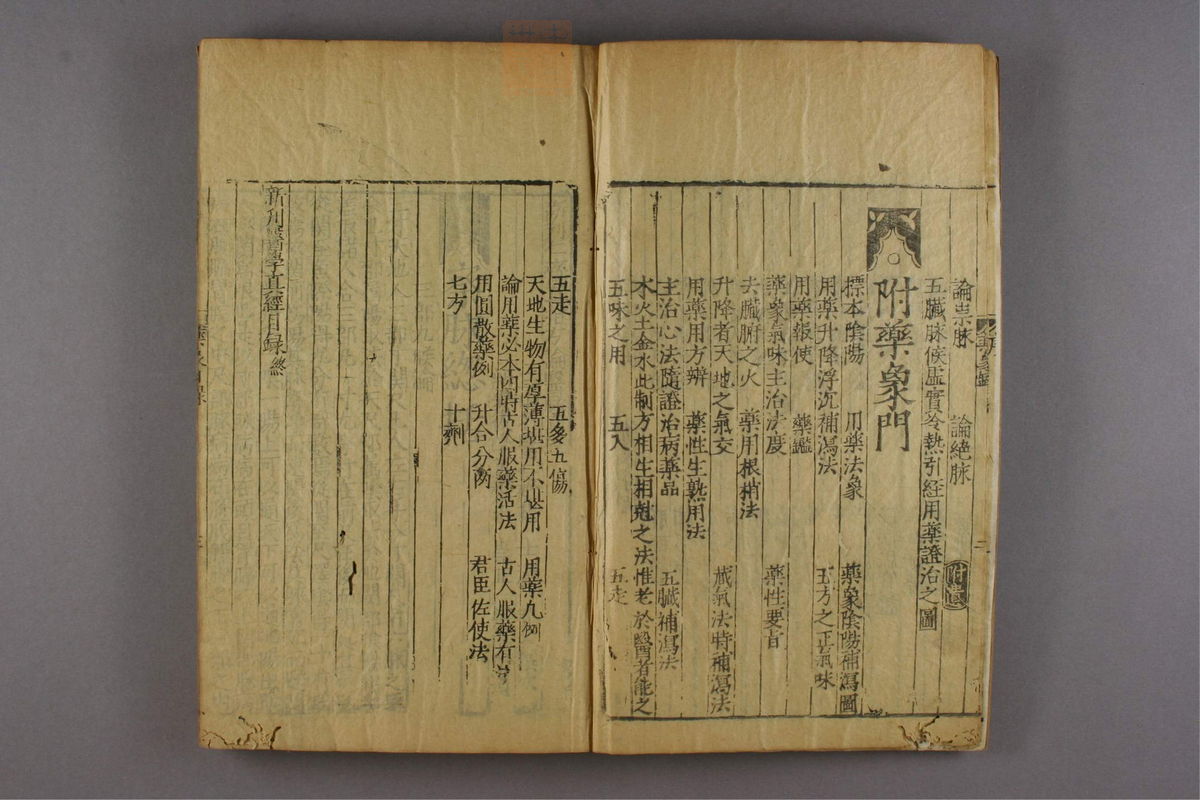 論祟脉 論絶脉
五臟脉候虛實冷熱引経用藥證治之圖 附
附藥象門
標本陰陽 用藥法象 藥象陰陽補瀉圖
用藥升降浮沉補瀉法 五方之正氣味
用藥報使 藥鑑
藥象氣味主治法度 藥性要旨
去臟腑之火 藥用根梢法
升降者天地之氣交 藏氣法時補瀉法
用藥用方辨 藥性生熟用法
主治心法隨證治病藥品 五臟補瀉法
木火土金水此制方相生相剋之法惟老於醫者能之
五味之用 五入 五走
五走 五多五傷
天地生物有厚薄堪用不堪用 用藥凡例
論用藥必本四時古人服藥活法 古人服藥有
用圓散藥例 升合分兩 君臣佐使法
七方 十劑
新刋醫學真經目録終